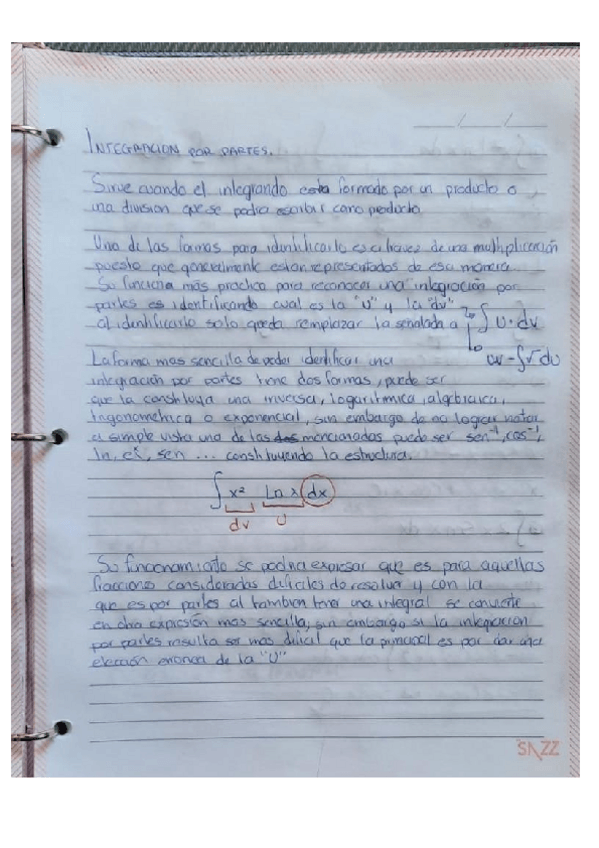 INTEGRACION POR PARTES.
Sirve cuando el integrando esta formado por un producto o
una division que se podria escribir como producto
Una de las formas para identificarlo es a traves de una multiplicación
puesto que generalmente estan representados de esa manera
Su funcion más practica para reconocer una integración por
partes es identificando cual es la "u" y la "dv"
al identificarlo solo queda remplazar la señalada a ∫ u · dv
uv - ∫ v du
La forma mas sencilla de poder identificar una
integración por partes tiene dos formas, puede ser
que la constituya una inversa, logarítmica, algebraica,
trigonometrica o exponencial, sin embargo de no lograr notar
a simple vista una de las dos mencionadas puede ser sen⁻¹, cos⁻¹,
ln, eˣ, sen ... constituyendo la estructura.
∫ x² Ln x dx
dv u
Su funcionamiento se podria expresar que es para aquellas
fracciones consideradas dificiles de resolver y con la
que es por partes al tambien tener una integral se convierte
en otra expresión mas sencilla, sin embargo si la integracion
por partes resulta ser mas dificil que la principal es por dar una
elección erronea de la "U"
SAZZ